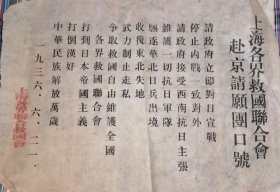 上海各界救國聯合會
赴京請願團口號
請政府立即對日宣戰
停止內戰一致對外
請政府接受西南抗日主張
維護一切抗日軍隊
驅逐華北日兵出境
收復東北失地
武力制止走私
爭取救國自由維護全國
各界救國聯合會
打到日本帝國主義
打倒漢奸
中華民族解放萬歲
一九三六．六．二一．
上海各界聯合救國會